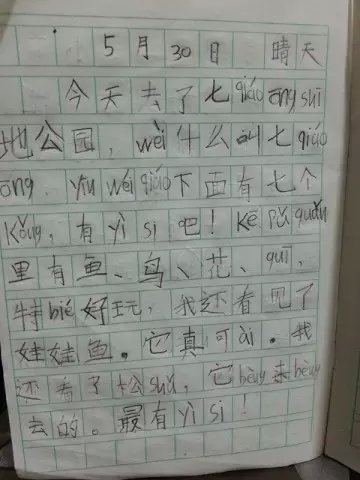 5月30日 晴天
今天去了七qiáo āng shī
地公园，wèi什么叫七qiáo
āng．yīn wéi qiáo下面有七个
kǒng，有yì si吧！kē pǔ guǎn
里有鱼、鸟、花、guī，
特bié好玩，我还看见了
娃娃鱼。它真可ài。我
还看了松shǔ，它bèng来bèng
去的。最有yì si！